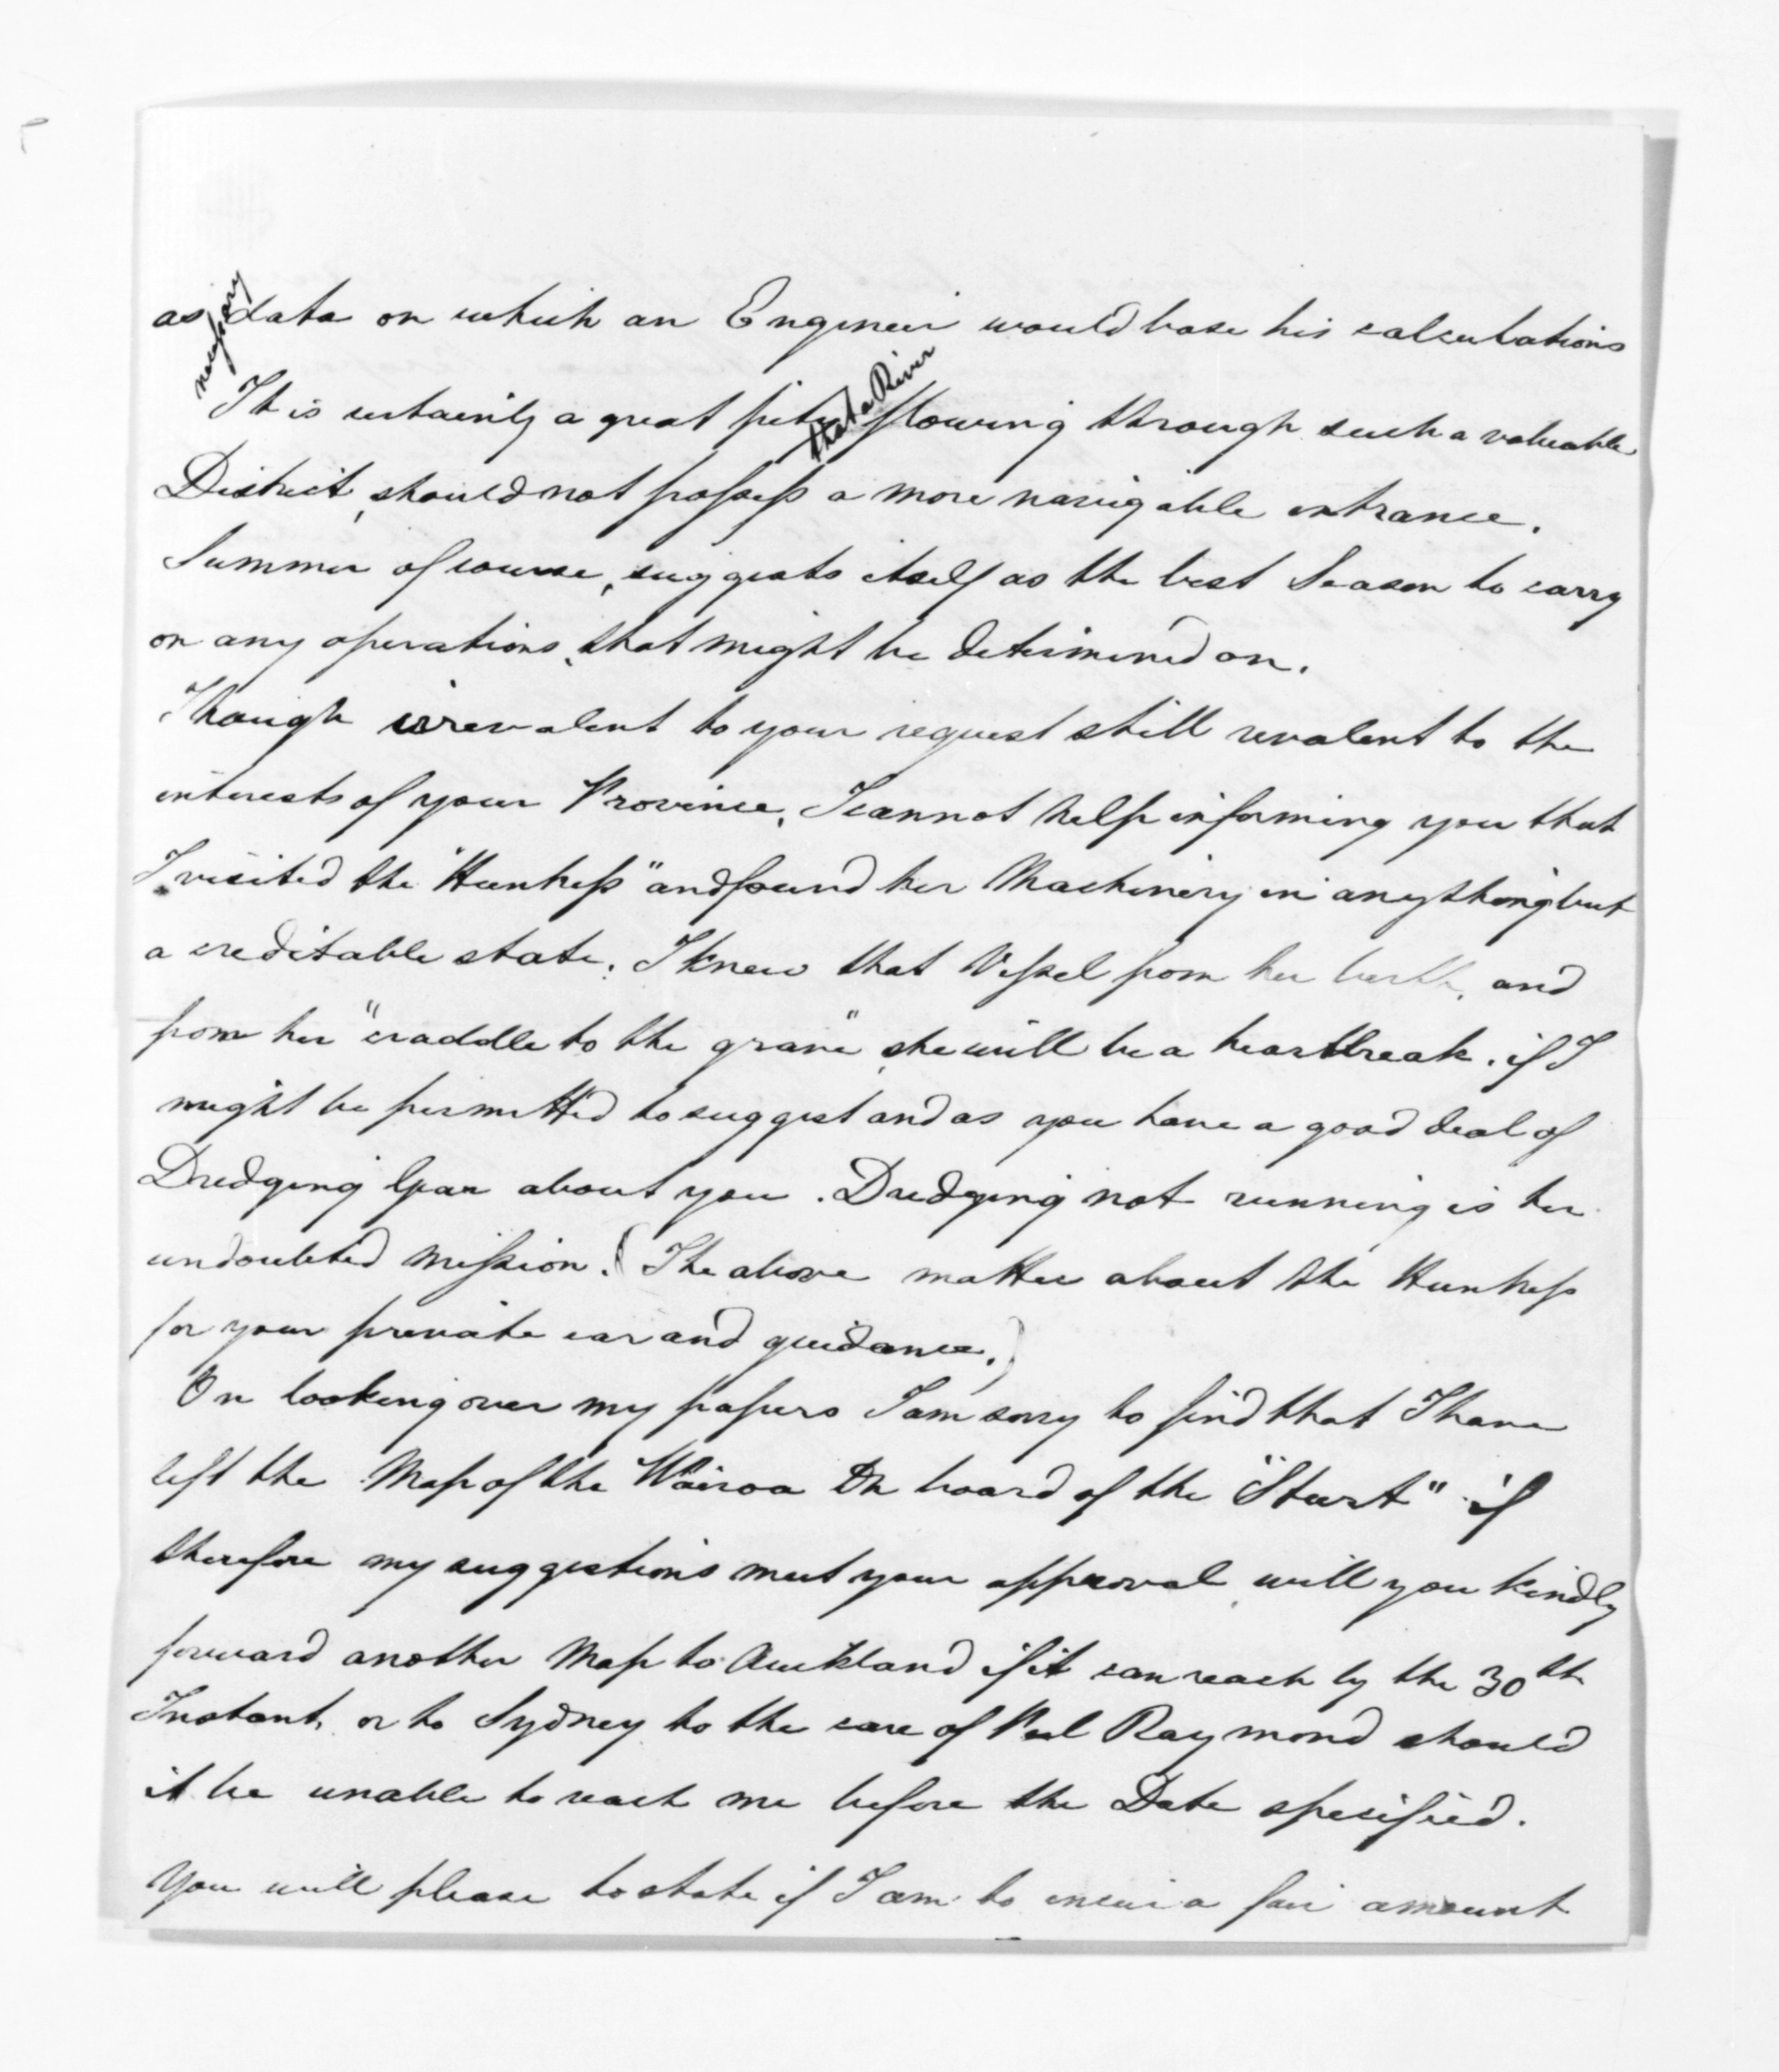 as necessary data on which an Engineer would base his calculations
It is certainly a great pity that a River flowing through such a valuable
District, should not possess a more navigable entrance.
Summer of course, suggests itself as the best Season to carry
on any operations, that might be determined on.
Though irrevalent to your request still revalent to the
interests of your Province, I cannot help informing you that
I visited the "Huntress" and found her Machinery in anything but
a creditable state. I knew that Vessel from her birth, and
from her "craddle to the grave", she will be a heartbreak. if I
might be permitted to suggest and as you have a good deal of
Dredging Gear about you. Dredging not running is her
undoubted mission. (The above matter about the Huntress
for your private ear and guidance.)
On looking over my papers I am sorry to find that I have
left the Map of the Wairoa On board of the "Sturt" if
therefore my suggestions meet your approval, will you kindly
forward another Map to Auckland if it can reach by the 30th
Instant, or to Sydney to the care of Raymond should
it be unable to reach me before the Date specified.
You will please to state if I am to incur a fair amount